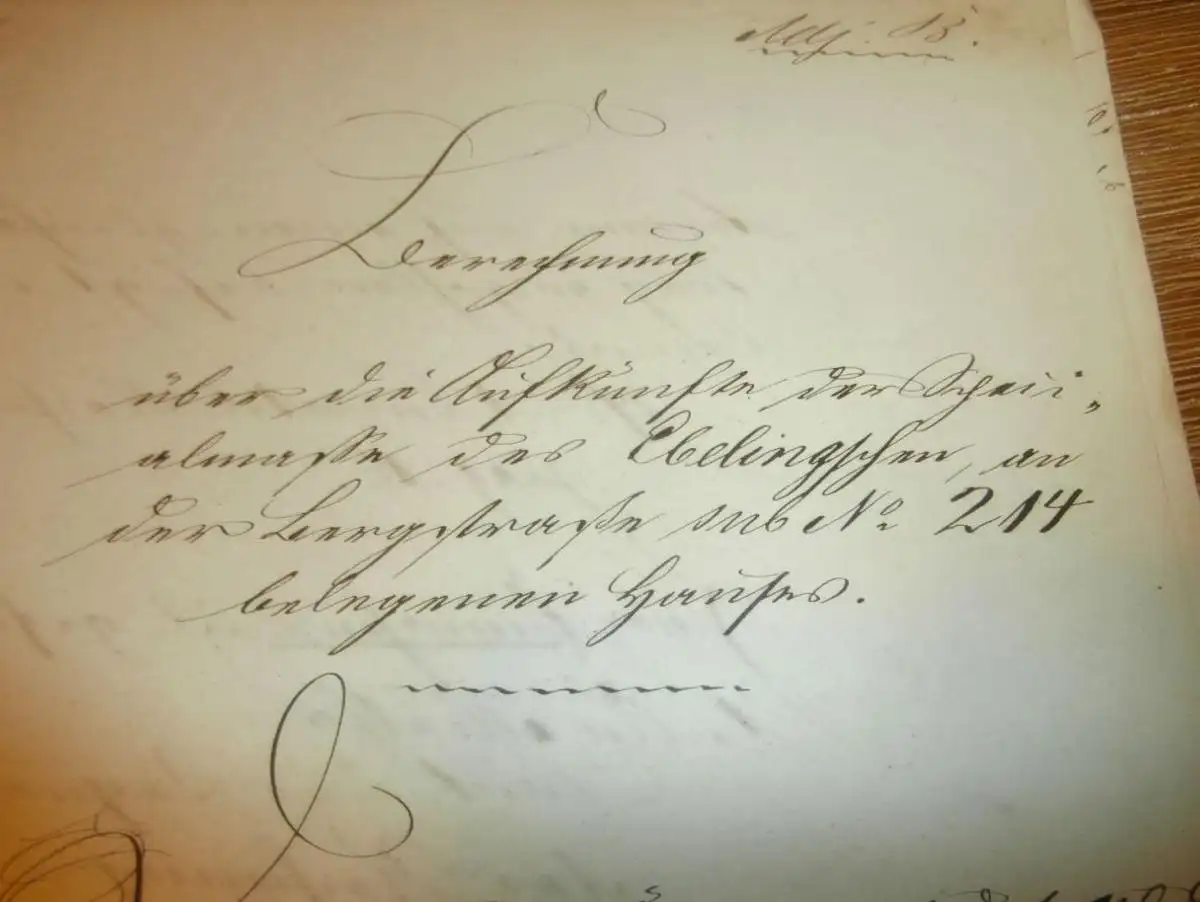 Adj. B.
Berechnung
über die Aufkünfte der Speci„
almasse des Ebelingschen, an
der Bergstrasse sub No 214
belegenen Hauses.